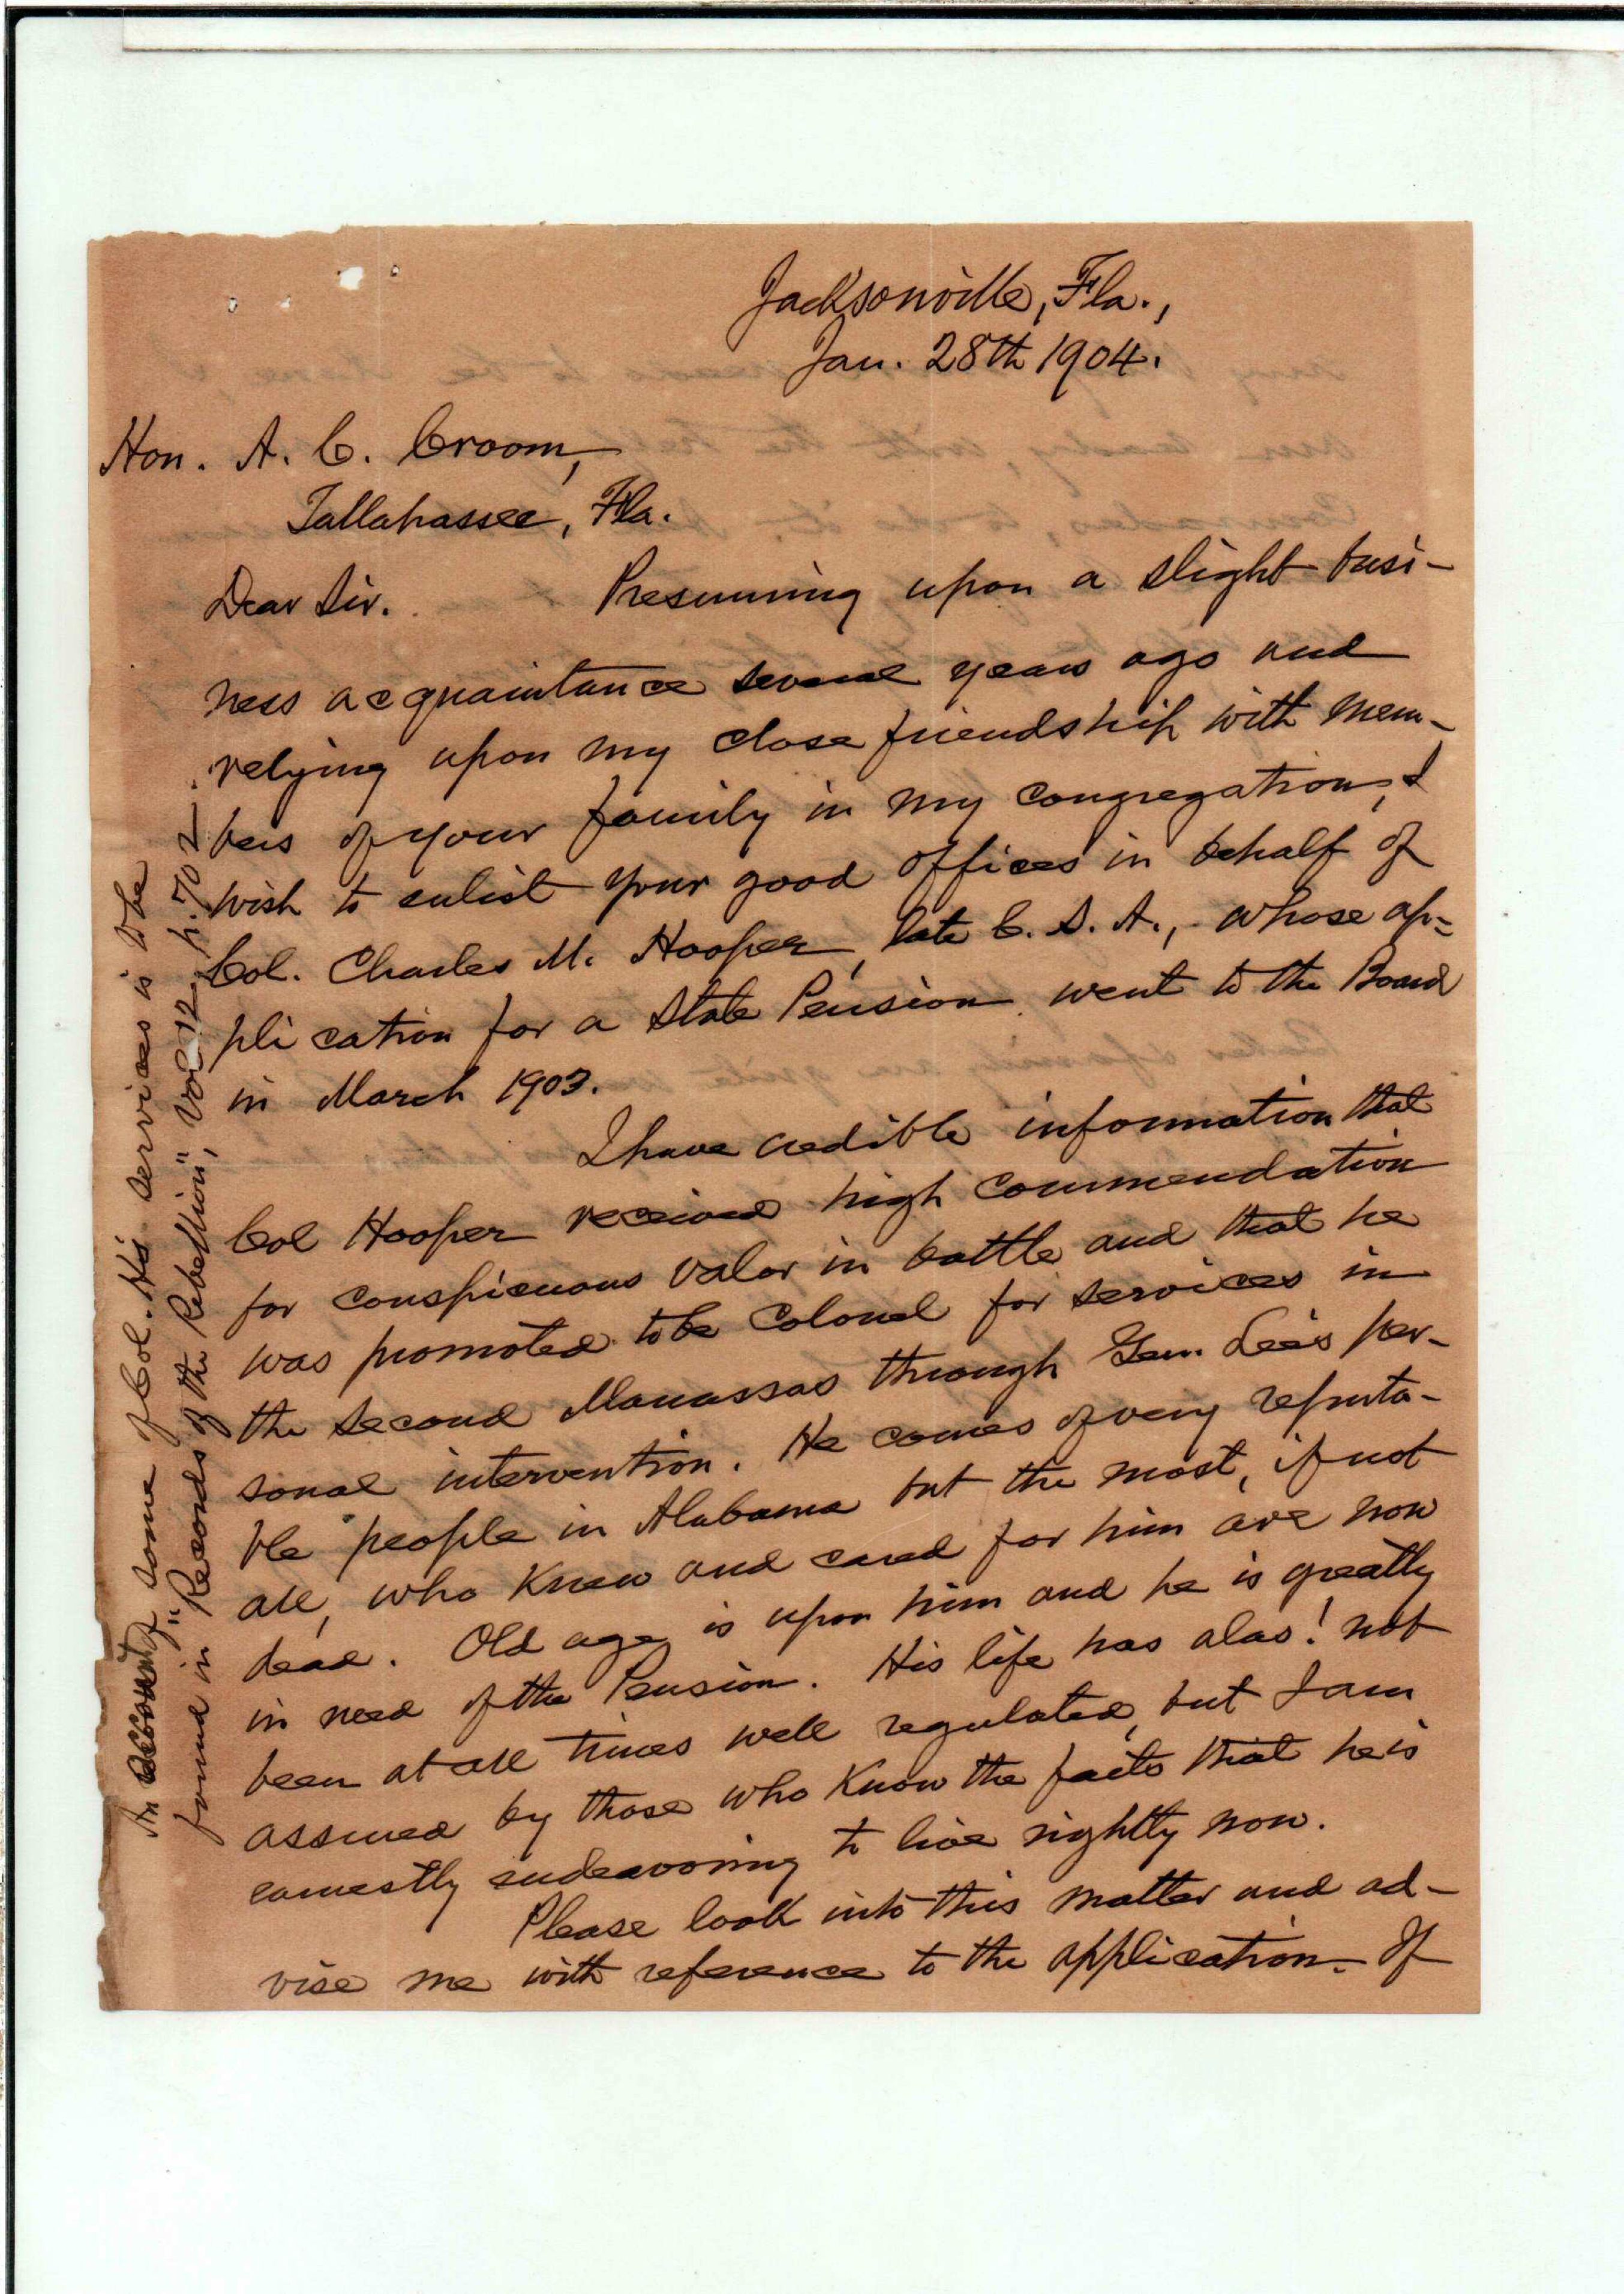 Jacksonville, Fla.,
Jan. 28th 1904.
Hon. A. C. Croom,
Tallahassee, Fla.
Dear Sir. Presuming upon a slight busi-
ness acquaintance several years ago and
relying upon my close friendship with mem-
bers of your family in my congregation, I
wish to enlist your good offices in behalf of
Col. Charles M. Hooper, late C. S. A., whose ap-
plication for a State Pension went to the Board
in March 1903.
I have credible information that
Col Hooper received high commendation
for conspicuous valor in battle and that he
was promoted to be Colonel for services in
the second Manassas through Gen. Lee's per-
sonal intervention. He comes of very reputa-
ble people in Alabama but the most, if not
all, who knew and cared for him are now
dead. Old age is upon him and he is greatly
in need of the Pension. His life has alas! not
been at all times well regulated, but I am
assured by those who know the facts that he is
earnestly endeavoring to live rightly now.
Please look into this matter and ad-
vise me with reference to the application. If
An account of some of Col. H's services is to be
found in "Records of the Rebellion," Vol 12 p. 702.